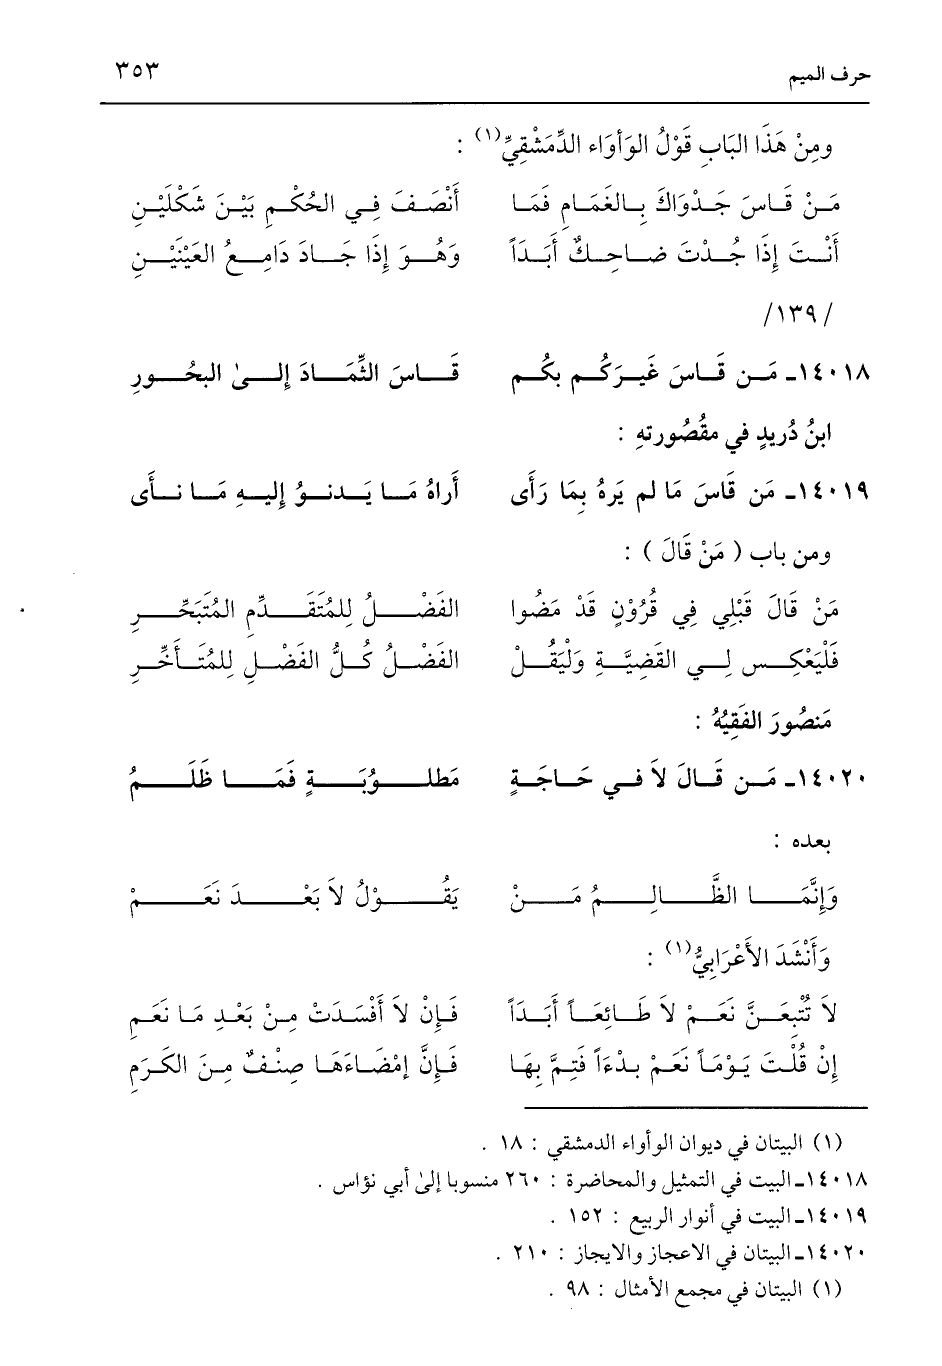 حرف الميم ٣٥٣
ومِنْ هَذَا البَابِ قَوْلُ الوَأوَاء الدِّمَشْقِيِّ(١) :
مَـنْ قَـاسَ جَـدْوَاكَ بِـالغَمَـامِ فَمَـا أَنْصَـفَ فِـي الحُكْـمِ بَيْـنَ شَكْلَيْـنِ
أَنْـتَ إِذَا جُـدْتَ ضَـاحِـكٌ أَبَـدَاً وَهُـوَ إِذَا جَـادَ دَامِـعُ العَيْنَيْـنِ
/١٣٩/
١٤٠١٨ـ مَـن قَـاسَ غَيـرَكُـم بِكُـم قَـاسَ الثِّمَـادَ إِلـى البُحُـورِ
ابنُ دُريدٍ في مقْصُورتهِ :
١٤٠١٩ـ مَن قَاسَ مَا لم يَرهُ بِمَا رَأَى أَراهُ مَـا يَـدنـوُ إِليـهِ مَـا نـأَى
ومن باب ( مَنْ قَالَ ) :
مَنْ قَالَ قَبْلِي فِي قُرُوْنٍ قَدْ مَضُوا الفَضْـلُ لِلمُتَقَـدِّمِ المُتَبَحِّـرِ
فَلْيَعْكِـس لِـي القَضِيَّـةِ وَلْيَقُـلْ الفَضْـلُ كُـلُّ الفَضْـلِ لِلمُتَـأَخِّـرِ
مَنصُورَ الفَقِيْهُ :
١٤٠٢٠ـ مَـن قَـالَ لاَ فـي حَـاجَـةٍ مَطلـوُبَـةٍ فَمَـا ظَلَـمُ
بعده :
وَإِنَّمَـا الظَّـالِـمُ مَـنْ يَقُـوْلُ لاَ بَعْـدَ نَعَـمْ
وَأَنْشَدَ الأَعْرَابِيُّ(١) :
لاَ تُتْبِعَـنَّ نَعَـمْ لاَ طَـائِعَـاً أَبَـدَاً فَـإِنْ لاَ أَفْسَـدَتْ مِـنْ بَعْـدِ مَـا نَعَـمِ
إِنْ قُلْتَ يَوْمَاً نَعَمْ بدْءَاً فَتِمَّ بِهَا فَـإِنَّ إِمْضَـاءَهَـا صِنْـفٌ مِـنَ الكَـرَمِ
(١) البيتان في ديوان الوأواء الدمشقي : ١٨ .
١٤٠١٨ـ البيت في التمثيل والمحاضرة : ٢٦٠ منسوبا إلى أبي نؤاس .
١٤٠١٩ـ البيت في أنوار الربيع : ١٥٢ .
١٤٠٢٠ـ البيتان في الاعجاز والايجاز : ٢١٠ .
(١) البيتان في مجمع الأمثال : ٩٨ .